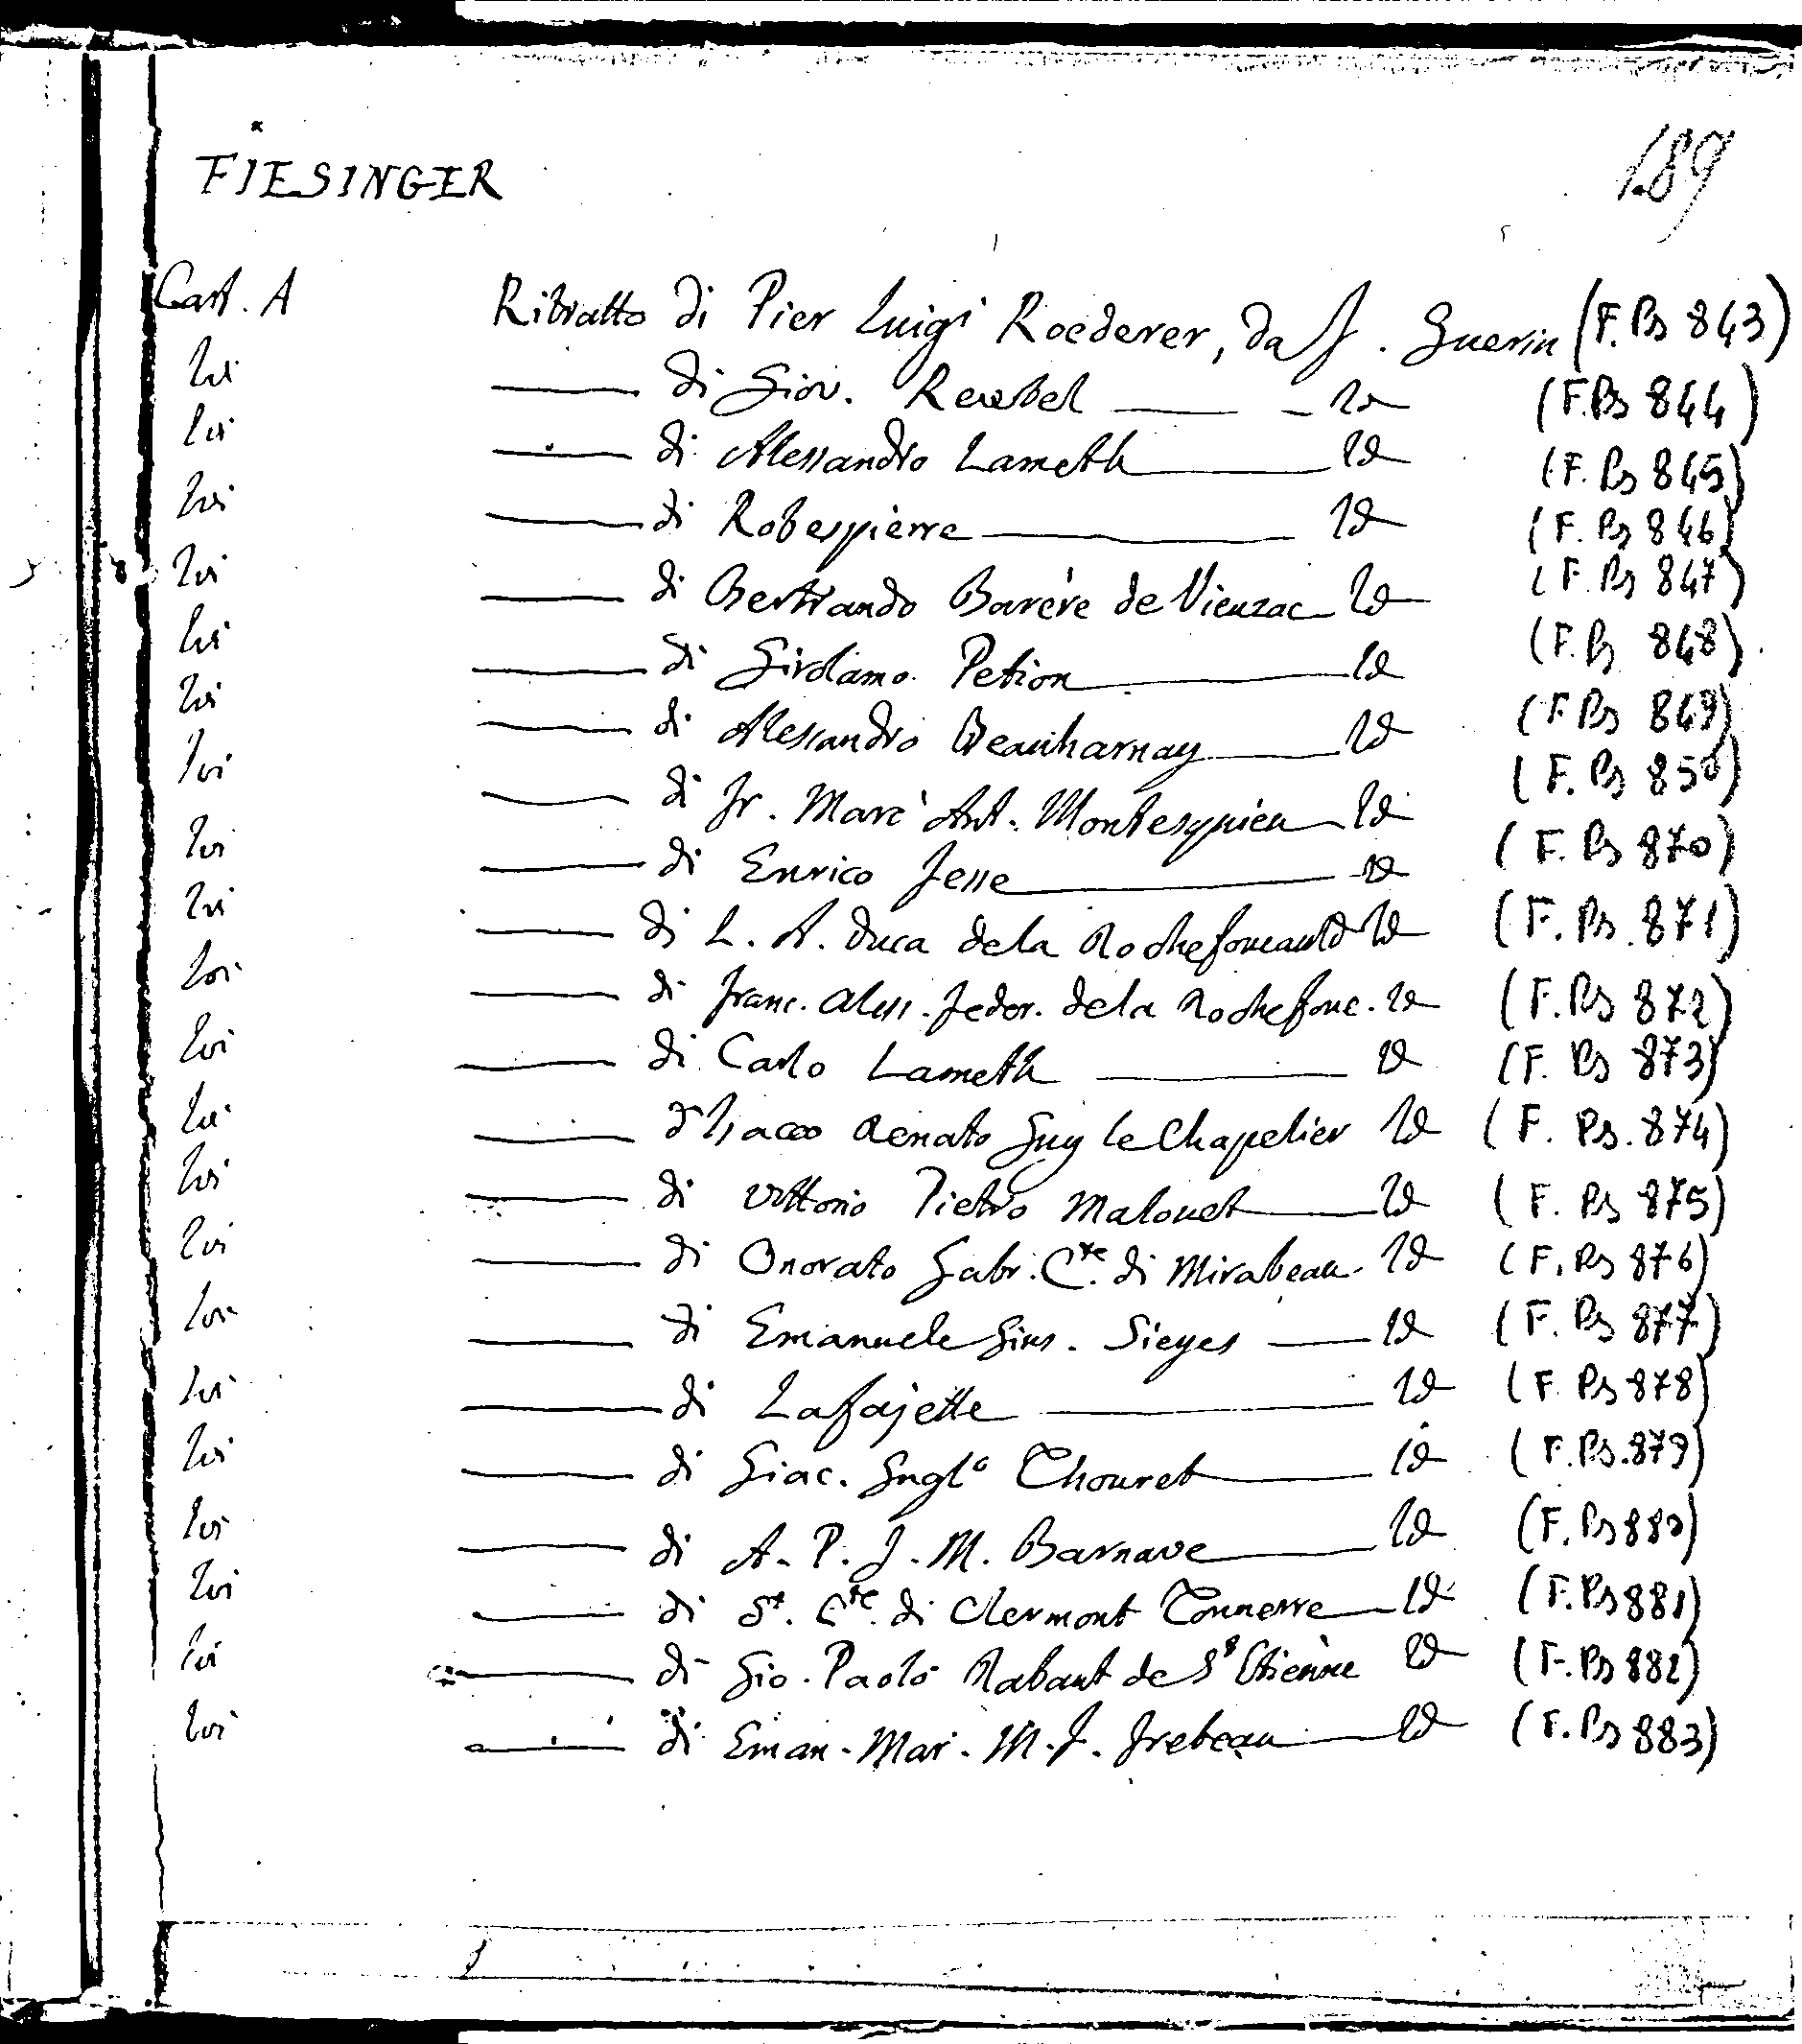 FIESINGER 189
Cart. A Ritratto di Pier Luigi Roederer, da J. Guerin (F. Ps 843)
Ivi —— di Giov. Rewbel —— Id (F. Ps 844)
Ivi —— di Alessandro Lameth —— Id (F. Ps 845)
Ivi —— di Robespierre —— Id (F. Ps 846)
Ivi —— di Bertrando Barère de Vieuzac — Id (F. Ps 847)
Ivi —— di Girolamo Petion —— Id (F. Ps 848)
Ivi —— di Alessandro Beauharnay —— Id (F. Ps 849)
Ivi —— di Fr. Marc' Ant. Montesquieu — Id (F. Ps 850)
Ivi —— di Enrico Jesse —— Id (F. Ps 870)
Ivi —— di L. A. Duca de la Rochefoucauld Id (F. Ps 871)
Ivi —— di Franc. Aless. Feder. de la Rochefouc. Id (F. Ps 872)
Ivi —— di Carlo Lameth —— Id (F. Ps 873)
Ivi —— d'Isacco Renato Guy le Chapelier Id (F. Ps. 874)
Ivi —— di Vittorio Pietro Malouet —— Id (F. Ps 875)
Ivi —— di Onorato Gabr. Cte. di Mirabeau. Id (F. Ps 876)
Ivi —— di Emanuele Gius. Sieyes —— Id (F. Ps 877)
Ivi —— di Lafajette —— Id (F. Ps 878)
Ivi —— di Giac. Gugl° Thouret —— Id (F. Ps. 879)
Ivi —— di A. P. J. M. Barnave —— Id (F. Ps 880)
Ivi —— di St. Cte. di Clermont Tonnerre — Id (F. Ps 881)
Ivi —— di Gio. Paolo Rabaut de St Etienne Id (F. Ps 882)
Ivi —— di Eman. Mar. M. J. Frebeau —— Id (F. Ps 883)